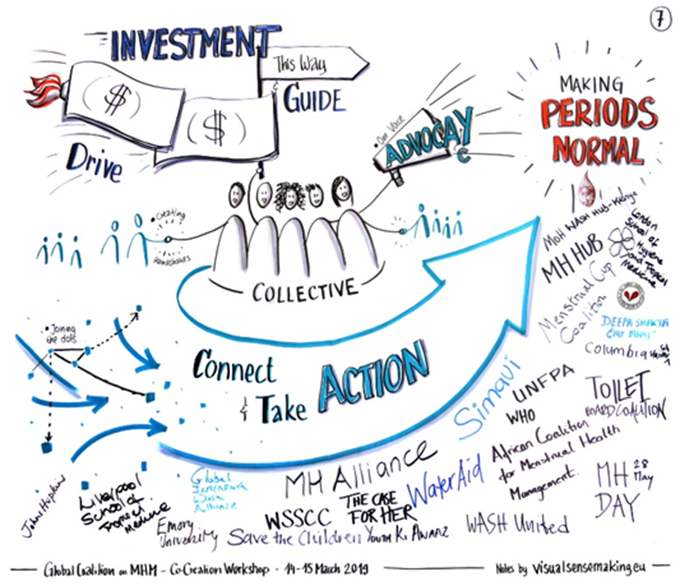 7
INVESTMENT
This Way
& GUIDE
$
$
Drive
Our Voice
ADVOCAY
C
MAKING
PERIODS
NORMAL
Creating
COLLECTIVE
Joining
the dots
Connect
& Take ACTION
MH HUB
London
School of
Hygiene
and Tropical
Medicine
Menstrual Cup
Coalition
Columbia
Simavi
UNFPA
WHO
TOILET
BOARD COALITION
African Coalition
for Menstrual Health
Management
MH 28
May
DAY
MH Alliance
WaterAid
Global
Interfaith
WASH
Alliance
John Hopkins
Liverpool
School of
Tropical
Medicine
Emory
University
WSSCC
THE CASE
FOR HER
Save the Children
Youth Ki Awaaz
WASH United
Global Coalition on MHM - Co-Creation Workshop - 14-15 March 2019
Notes by visualsensemaking.eu